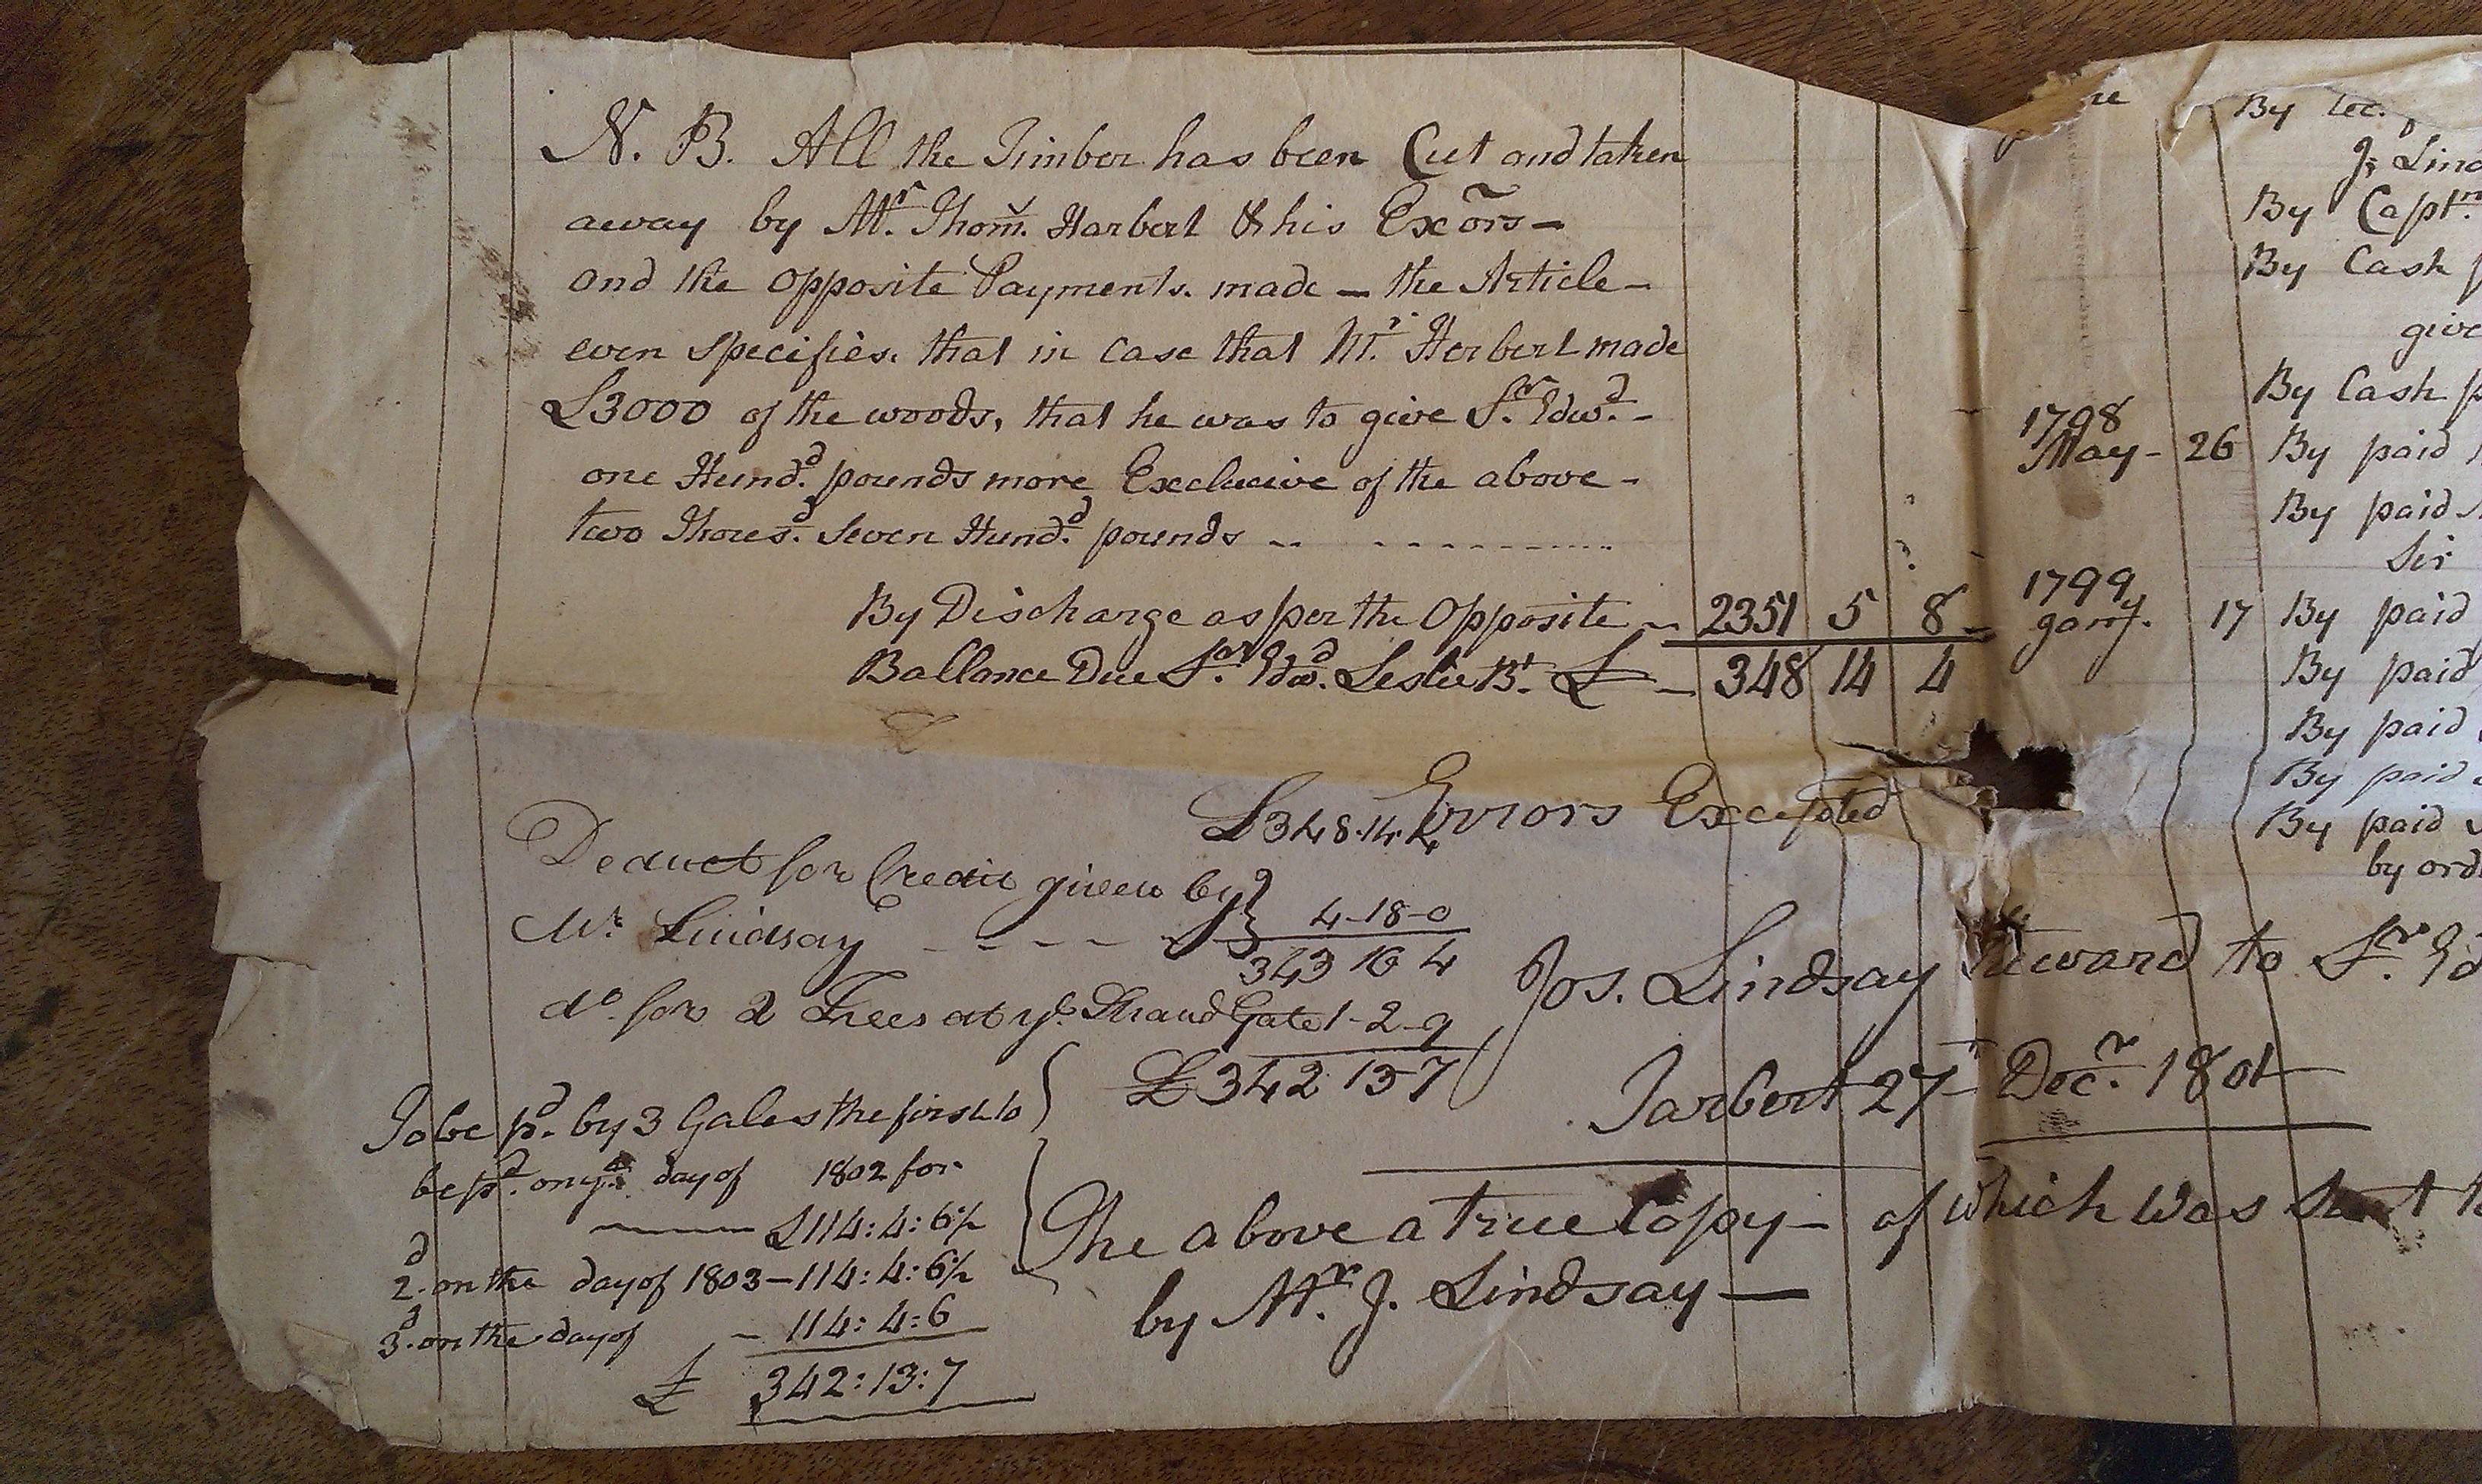 N. B. All the Timber has been Cut and taken
away by Mr. Thom. Harbert & his Exors —
and the opposite Payments. made — the Article —
even specifies. that in case that Mr. Herbert made
£3000 of the woods, that he was to give Sr. Edwd. -
one Hundd. pounds more Exclusive of the above -
two Thousd. Seven Hundd. pounds
By Discharge as per the Opposite — 2351 5 8
Ballance Due Sr. Edwd. Leslie Bt. £ — 348 14 4
Errors Excepted
£348.14.4
Deduct for Credit given by
Mr. Lindsay - - - - 4-18-0
343 16 4
do. for 2 Trees at ye. Strand Gate 1-2-9
£342 13 7
Jos. Lindsay Steward to Sr. Ed
Tarbert 27th Decr. 1801
To be pd. by 3 Gales the first to
be pd. on ye. day of 1802 for
£114:4:6½
2d. on the day of 1803 — 114:4:6½
3d. on the day of — 114:4:6
£ 342:13:7
The above a true Copy — of which was sent
by Mr. J. Lindsay —
By
J. Lind
By Captn.
By Cash
give
By Cash
1798
May - 26 By paid
By paid
Sir
1799
17 By paid
By paid
By paid
By paid
By paid
by ord